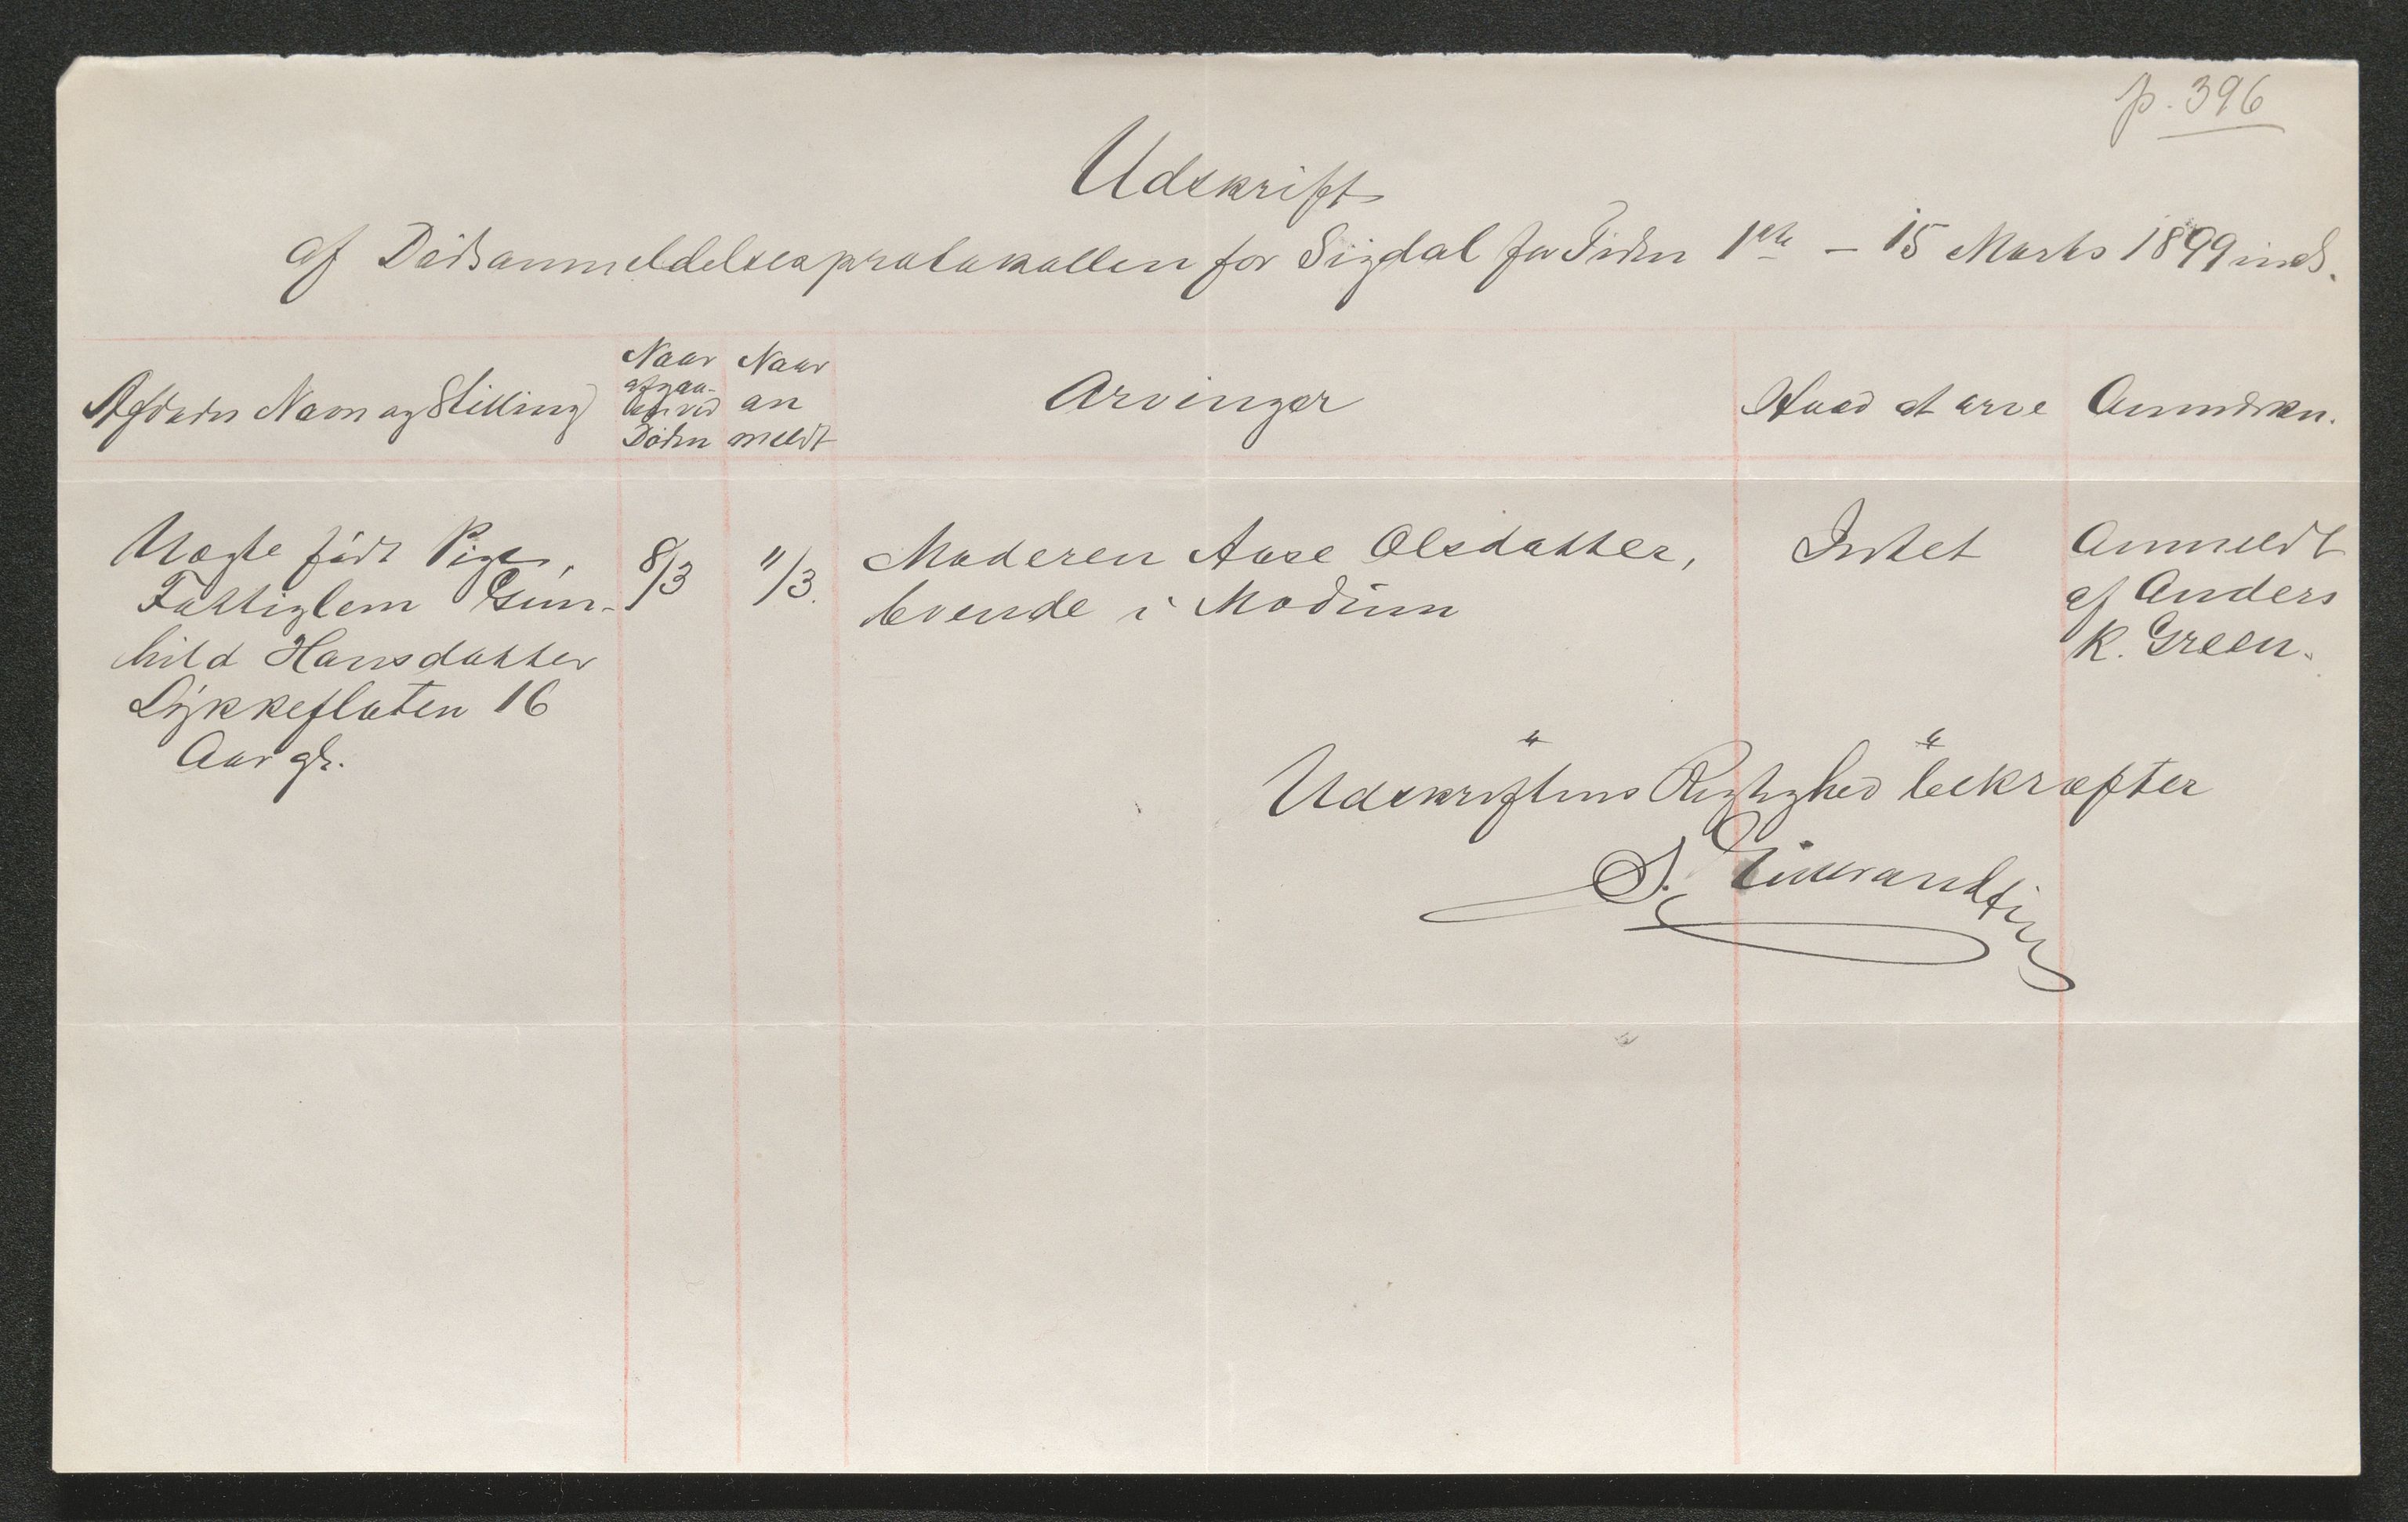 p. 396
Udskrift
af Dødsanmeldelsesprotokollen for Sigdal for Tiden 1ste – 15 Marts 1899 incl.
Afdødes Navn og Stilling
Naar
afgaa-
en ved
Døden
Naar
an
meldt
Arvinger
Hvad at arve
Anmærkn.
Uægte født Pige,
Fattiglem Gun-
hild Hansdatter
Lykkeflaten 16
Aar gl.
8/3
11/3.
Moderen Aase Olsdatter,
boende i Modum
Intet
Anmeldt
af Anders
K. Green.
Udskriftens Rigtighed bekræfter
S.